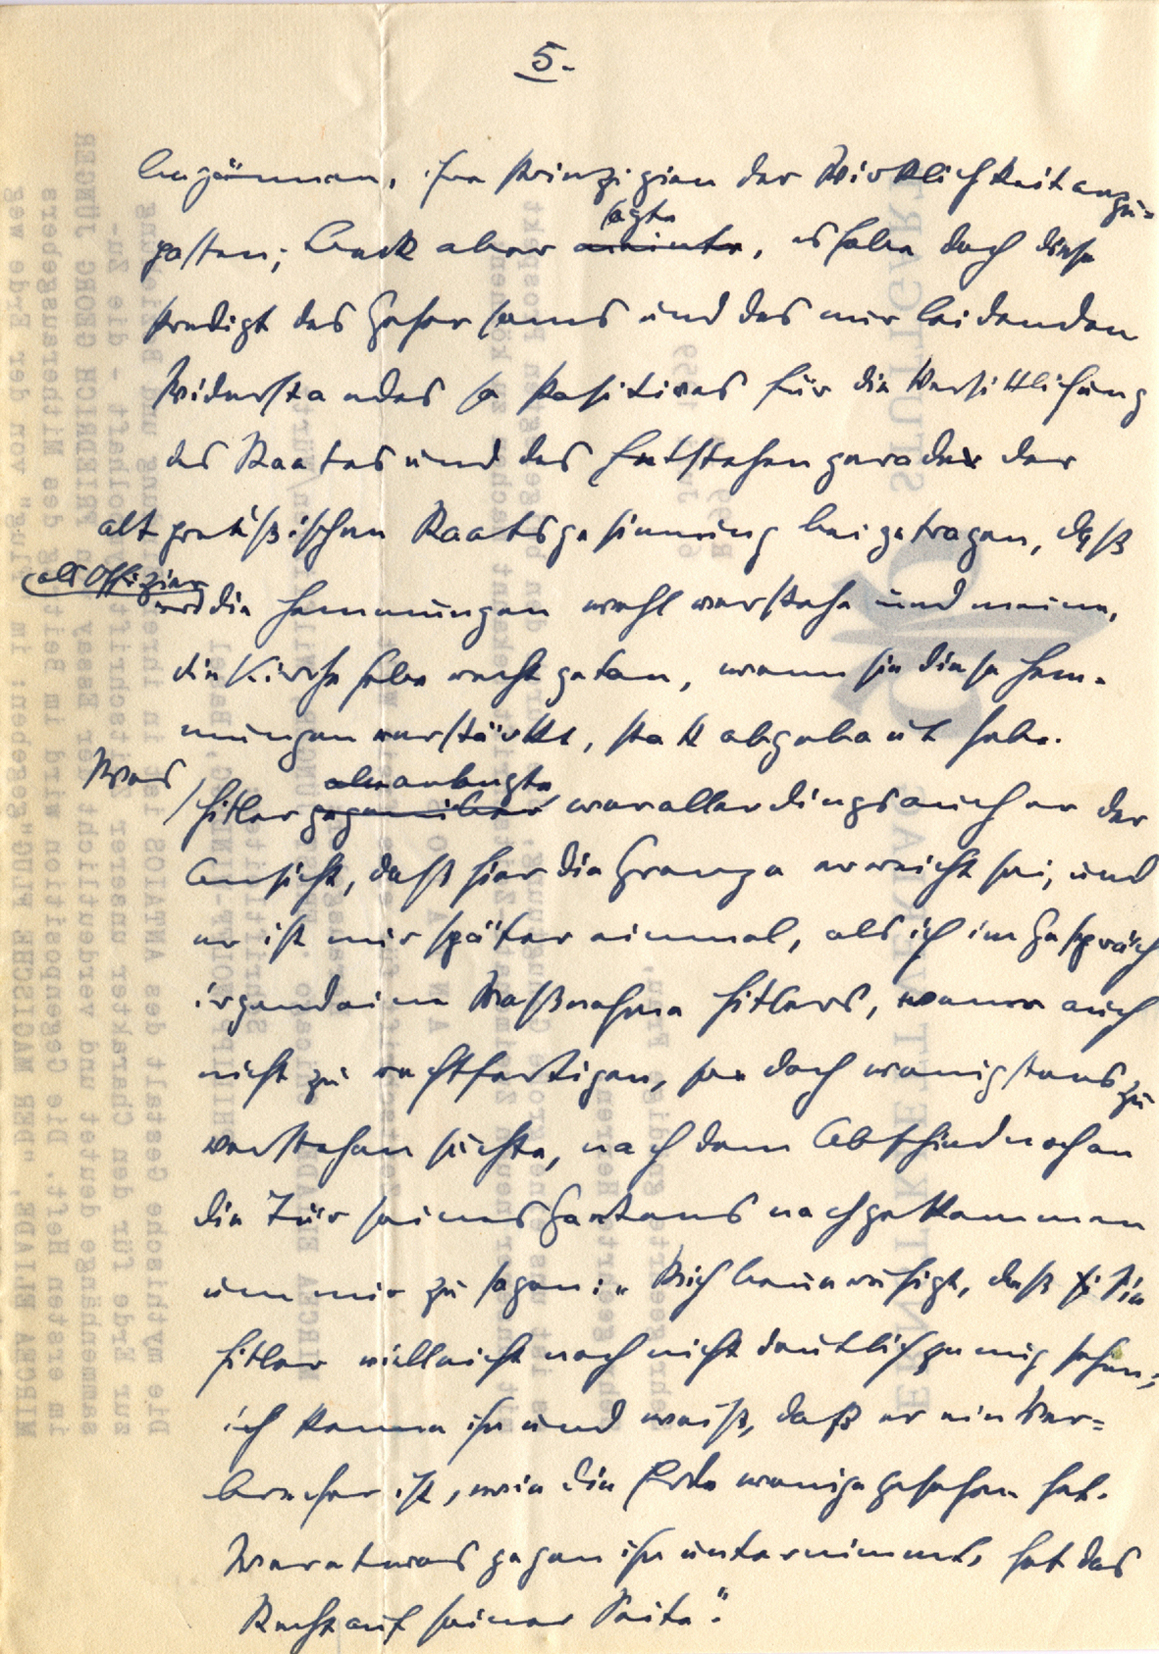 5.
begönnen, ihre Prinzipien der Wirklichkeit anzu=
passen; Beck aber meinte, sagte es habe doch diese
Predigt des Gehorsams und des nur leidenden
Widerstandes so Positives für die Versittlichung
des Staates und das Entstehen gerade der
altpreußischen Staatsgesinnung beigetragen, daß
als Offizier
er die Hemmungen wohl verstehe und meine,
die Kirche habe recht getan, wenn sie diese Hem-
mungen verstärkt, statt abgebaut habe.
Was
Hitler gegenüber anbelangte war allerdings auch er der
Ansicht, daß hier die Grenze erreicht sei, und
er ist mir später einmal, als ich im Gespräch
irgendeine Maßnahme Hitlers, wenn auch
nicht zu rechtfertigen, so doch wenigstens zu
verstehen suchte, nach dem Abschied noch an
die Tür seines Gartens nachgekommen
um mir zu sagen: „Mich beunruhigt, daß Sie
Hitler vielleicht noch nicht deutlich genug sehen;
ich kenne ihn und weiß, daß er ein Ver=
brecher ist, wie die Erde wenige gesehen hat.
Wer etwas gegen ihn unternimmt, hat das
Recht auf seiner Seite".